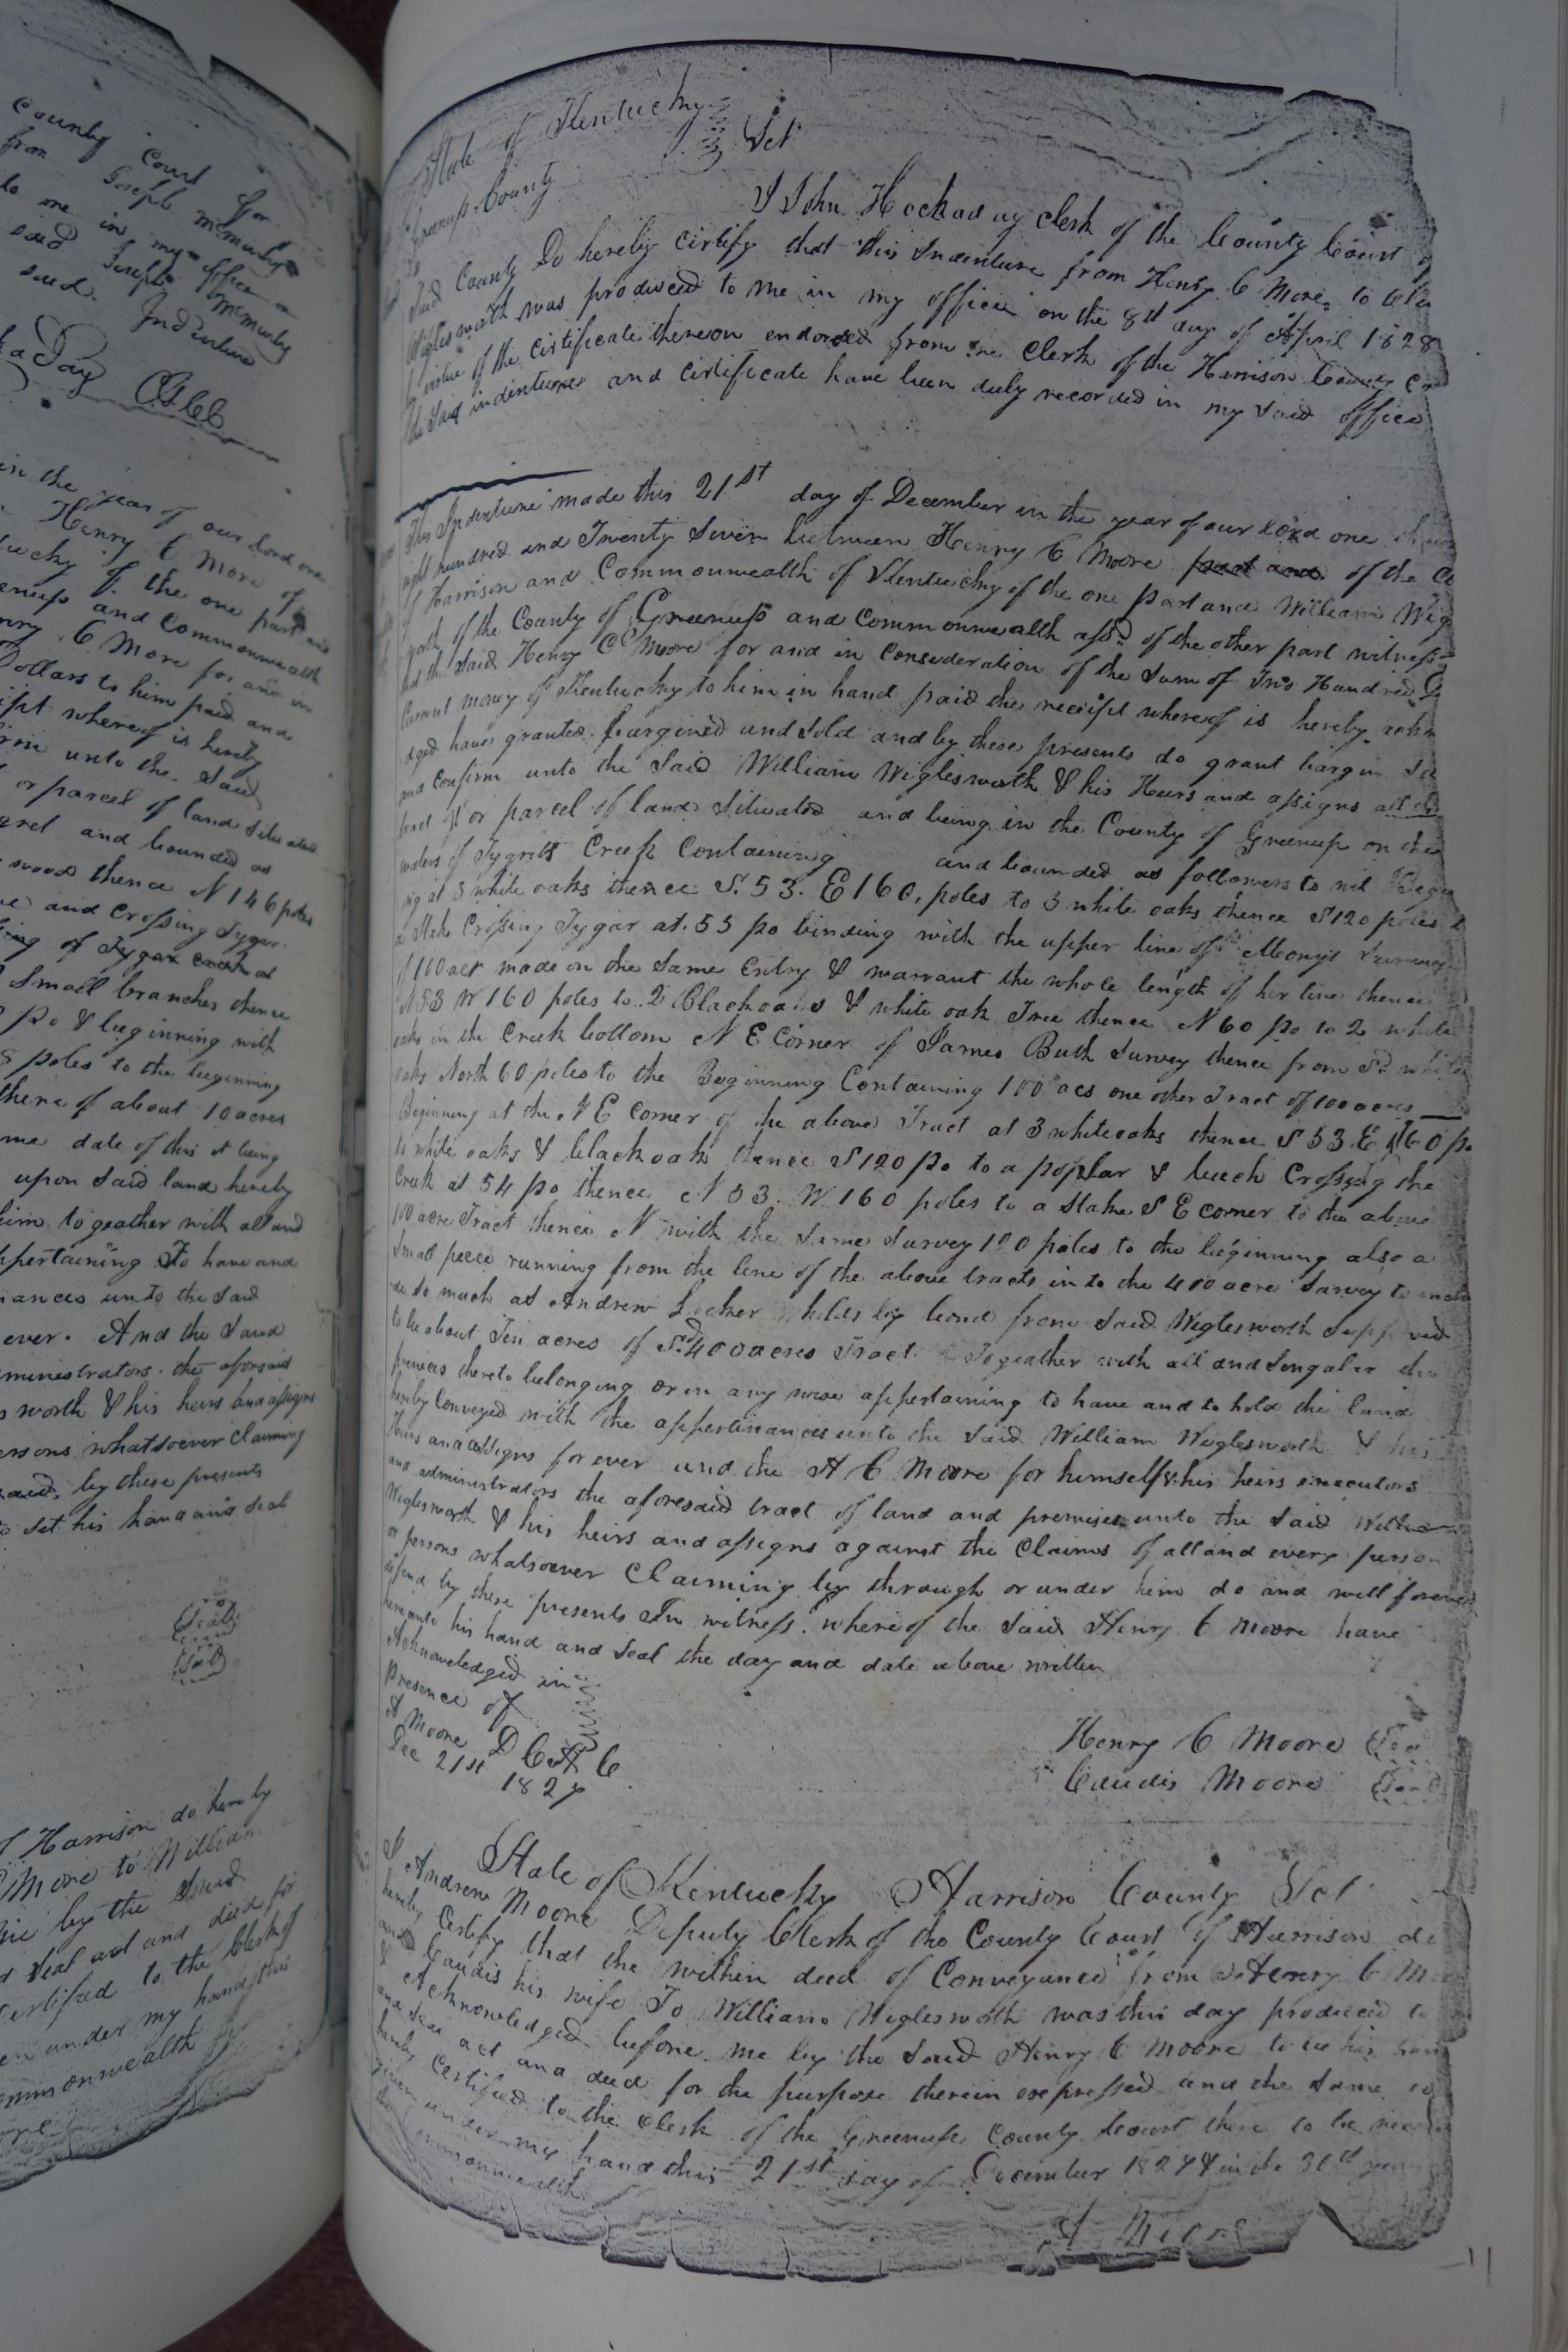 County Court for
from Joseph McMurtry
to me in my office on
said Joseph McMurtry
said Indenture
in the year of our Lord one
Henry C More of
of the one part and
and Commonwealth
C More for and in
Dollars to him paid and
whereof is hereby
unto the Said
or parcel of land situated
and bounded as
wood thence N 146 poles
and Crossing Tygar
of Tygar creek at
Small branches thence
po & beginning with
poles to the beginning
there of about 10 acres
date of this it being
upon Said land hereby
him togeather with all and
appertaining To have and
unto the Said
ever. And the Said
the aforsaid
worth & his heirs and assigns
persons whatsoever Claiming
by these presents
set his hand and seal
Seal
Seal
Harrison do hereby
More to William
by the Said
Seal act and deed for
Certifed to the Clerk of
under my hand this
Commonwealth
State of Kentucky
Greenup County Sct
I John Hockaday Clerk of the County Court of
Said County Do hereby certify that this Indenture from Henry C More to
Wiglesworth was produced to me in my office on the 8th day of April 1828
by virtue of the certificate thereon endorsed from the Clerk of the Harrison County
the said indenture and certificate have been duly recorded in my Said office
This Indenture made this 21st day of December in the year of our lord one
eight hundred and Twenty Seven between Henry C Moore of the
of Harrison and Commonwealth of Kentucky of the one part and William Wig
worth of the County of Greenup and Commonwealth afsd of the other part witness
that the Said Henry C Moore for and in consideration of the Sum of Two Hundred
Current money of Kentucky to him in hand paid the receipt whereof is hereby
have granted bargined and Sold and by these presents do grant bargin
and Confirm unto the Said William Wiglesworth & his Heirs and assigns all
tract or parcel of land Situated and being in the County of Greenup on the
waters of Tygrits Creek Containing and bounded as followers to wit
at 3 white oaks thence S. 53. E 160, poles to 3 white oaks thence S 120 poles
a Stake Crossing Tygar at 55 po binding with the upper line of
100 acr made on the Same Entry & warrant the whole length of her line thence
N 53 W 160 poles to 2 Blackoaks & white oak Tree thence N 60 po to 2 white
oaks in the Creek bottom N E Corner of James Buth Survey thence from Sd white
oaks North 60 poles to the Beginning Containing 100 acs one other Tract of 100 acres
Beginning at the N E Corner of the above Tract at 3 whiteoaks thence S 53 E 160 po
to white oaks & black oak thence S 120 po to a poplar & beech Crossing the
Creek at 54 po thence N 53. W 160 poles to a Stake S E corner to the above
100 acre Tract thence N with the Same Survey 120 poles to the beginning also a
Small peece running from the line of the above tracts in to the 400 acre Survey to
so much as Andrew holds by bond from Said Wiglesworth Supposed
to be about Ten acres of Sd 400 acres Tract Togeather with all and Singular the
premices thereto belonging or in any wise appertaining to have and to hold the land
hereby Conveyed with the appertinances unto the Said William Wiglesworth & his
Heirs and assigns for ever and the H C Moore for himself & his heirs executors
and administrators the aforesaid tract of land and premises unto the Said William
Wiglesworth & his heirs and assigns against the Claims of all and every person
or persons whatsoever Claiming by through or under him do and will forever
defend by these presents In witness whereof the Said Henry C Moore have
hereunto his hand and Seal the day and date above written
Acknowledged in
presence of
A Moore D C H C
Dec 21st 1827
Henry C Moore Seal
Caudis Moore Seal
State of Kentucky Harrison County Sct
I Andrew Moore Deputy Clerk of the County Court of Harrison do
hereby Certify that the within deed of Conveyance from Henry C
and Caudis his wife To William Wiglesworth was this day produced to
& Acknowledged before me by the Said Henry C Moore to be his
and Seal act and deed for the purpose therein expressed and the Same
hereby Certified to the Clerk of the Greenup County Court there to be
given under my hand this 21st day of December 1827 & in the 36th year
the Commonwealth
A Moore